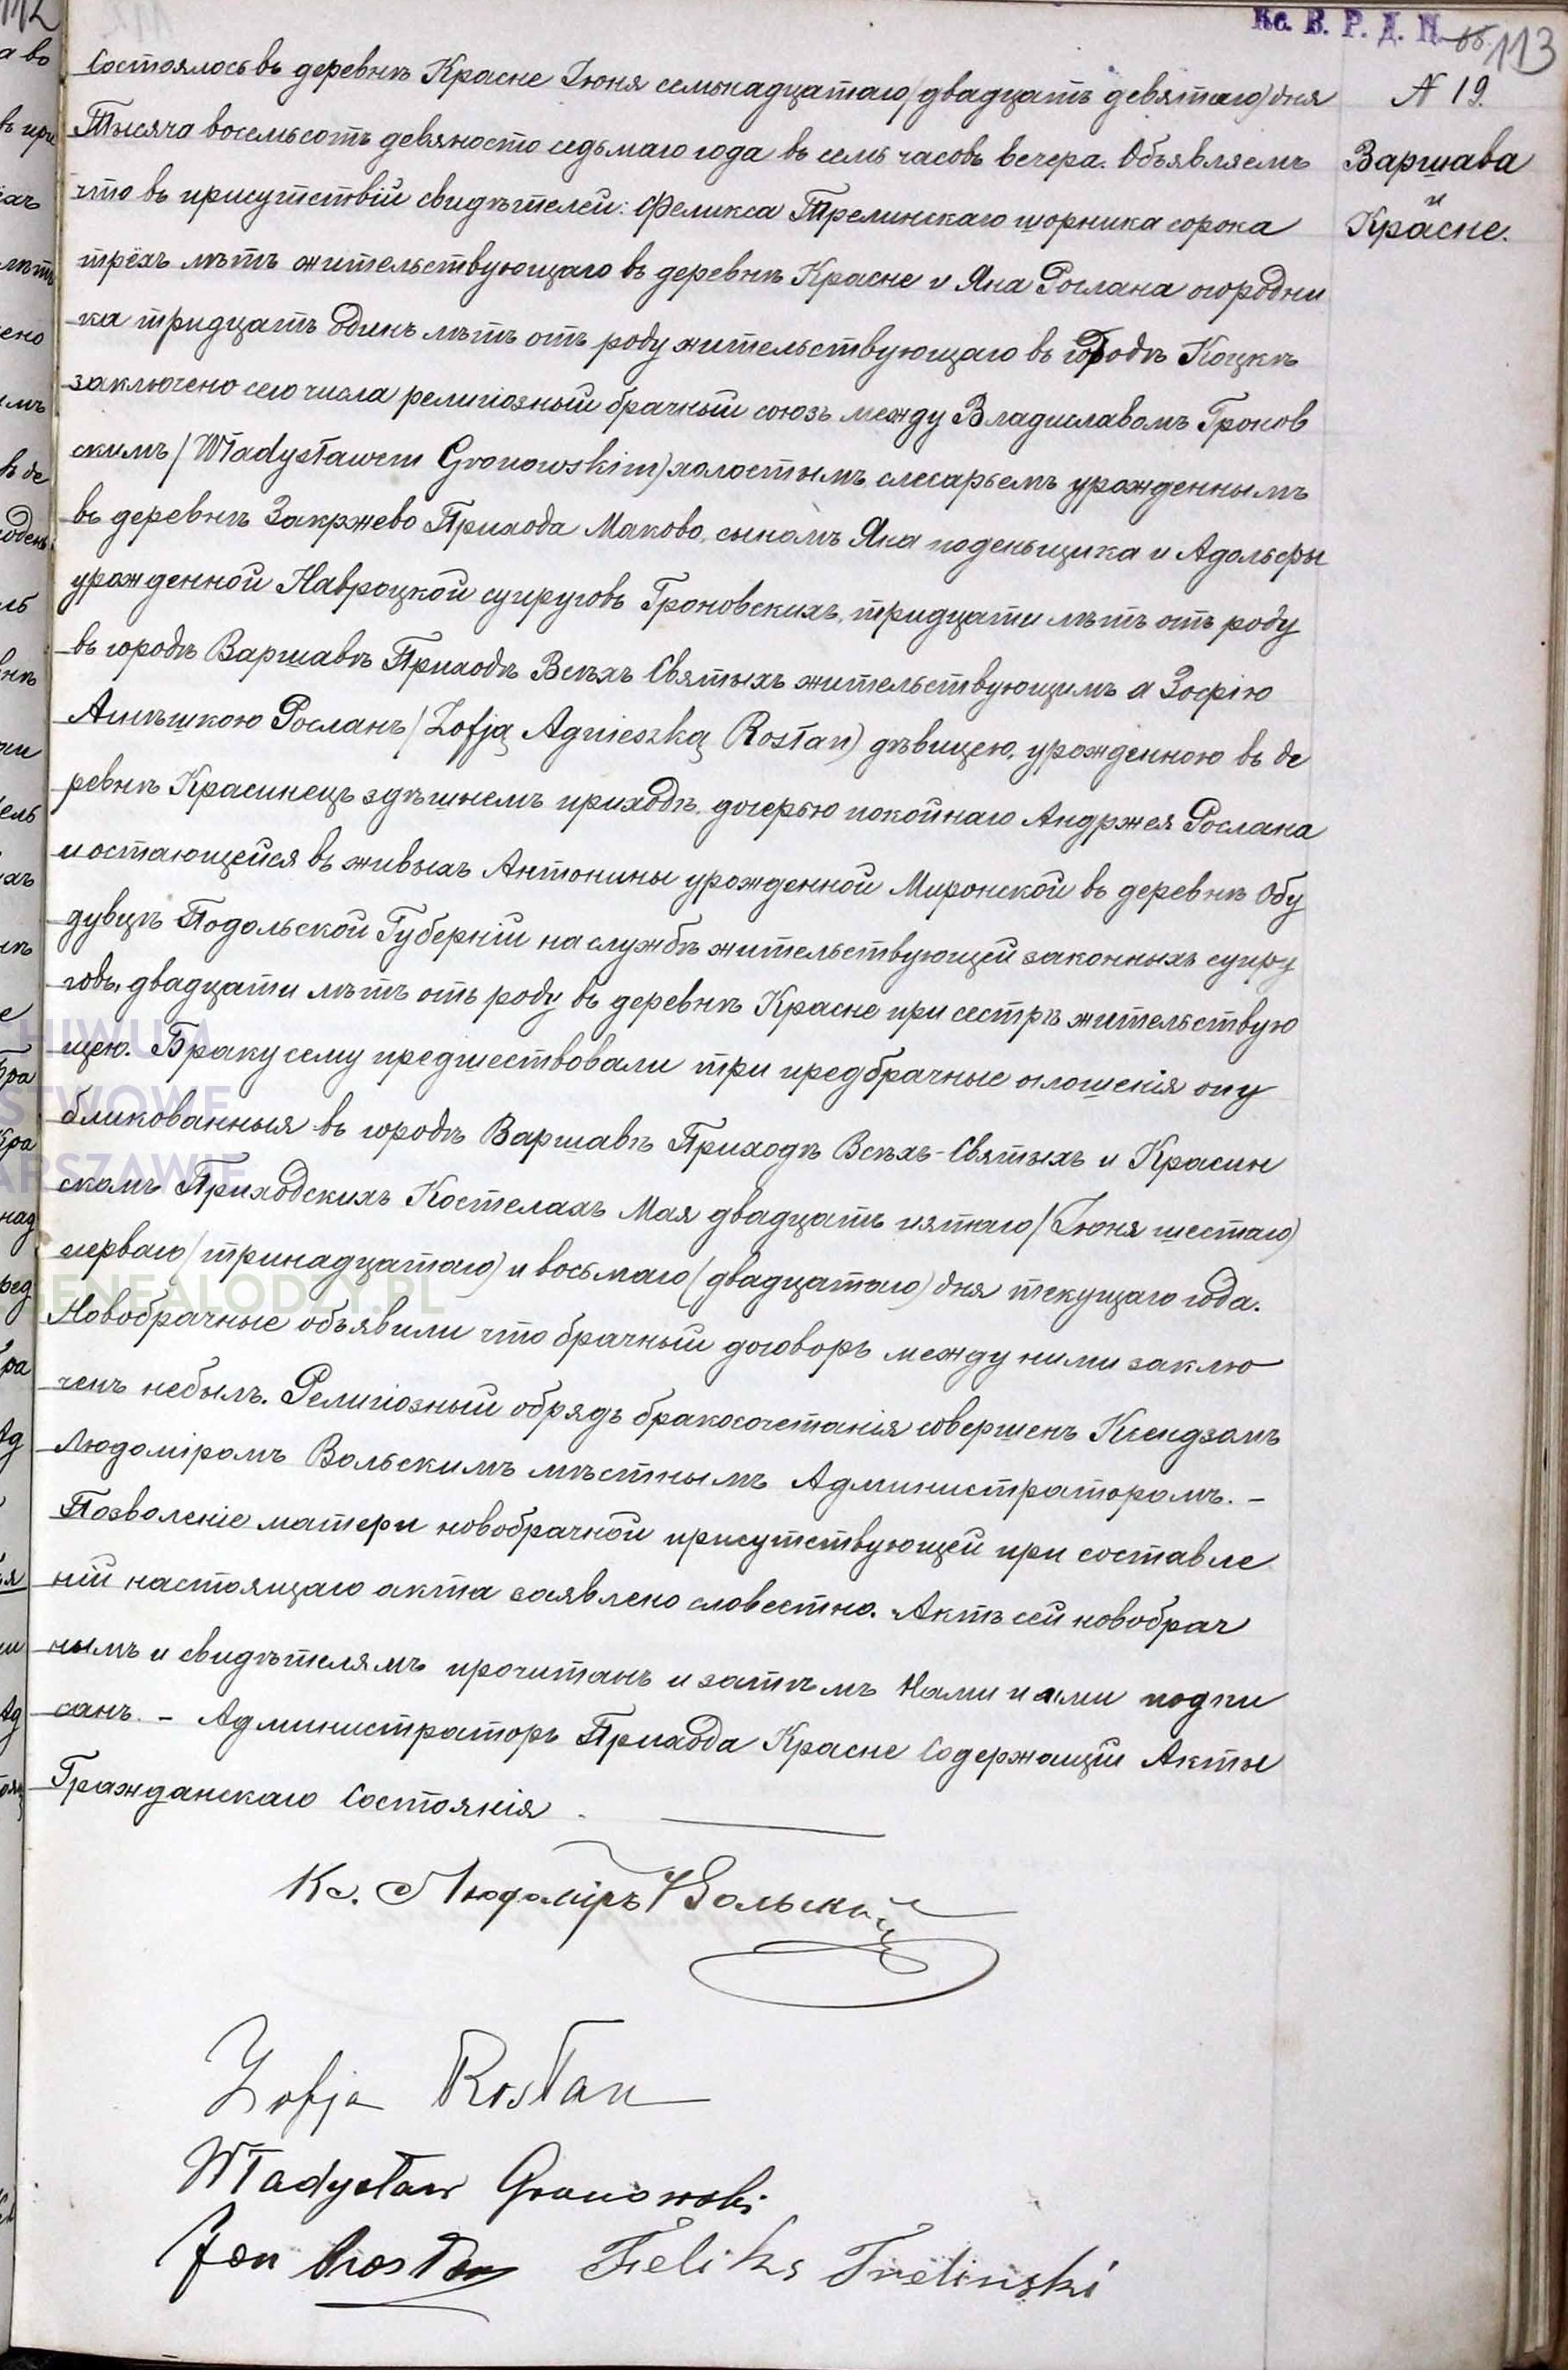 112
Кс. В. Р. Д. П. 113
№ 19.
Варшава
и
Красне.
Состоялось въ деревнѣ Красне Іюня семьнадцатаго (двадцать девятаго) дня
Тысяча восемьсотъ девяносто седьмаго года въ семь часовъ вечера. Объявляемъ
что въ присутствіи свидѣтелей: Феликса Трелинскаго шорника сорока
трёхъ лѣтъ жительствующаго въ деревнѣ Красне и Яна Рослана огородни
ка тридцать одинъ лѣтъ отъ роду жительствующаго въ городѣ Коцкѣ
заключено сего числа религіозный брачный союзъ между Владиславомъ Гронов
скимъ (Władysławem Gronowskim) холостымъ, слесарьемъ урожденнымъ
въ деревнѣ Закржево Прихода Маково, сыномъ Яна поденьщика и Адольфы
урожденной Навроцкой супруговъ Гроновскихъ, тридцати лѣтъ отъ роду
въ городѣ Варшавѣ Приходѣ Всѣхъ Святыхъ жительствующимъ а Зофію
Агнѣшкою Росланъ (Zofją Agnieszką Rosłan) дѣвицею, урожденною въ де
ревнѣ Красинецъ здѣшнемъ приходѣ, дочерью покойнаго Анджея Рослана
и остающейся въ живыхъ Антонины урожденной Миронской въ деревнѣ Обу
дувцѣ Подольской Губерніи на службѣ жительствующей законныхъ супру
говъ, двадцати лѣтъ отъ роду въ деревнѣ Красне при сестрѣ жительствую
щею. Браку сему предшествовали три предбрачные оглошенія опу
бликованныя въ городѣ Варшавѣ Приходѣ Всѣхъ-Святыхъ и Красин
скомъ Приходскихъ Костелахъ Мая двадцать пятаго (Іюня шестаго)
перваго (тринадцатаго) и восьмаго (двадцатаго) дня текущаго года.
Новобрачные объявили что брачный договоръ между ними заклю
ченъ небылъ. Религіозный обрядъ бракосочетанія совершенъ Ксендзомъ
Людоміромъ Вольскимъ мѣстнымъ Администраторомъ. –
Позволеніе матери новобрачной присутствующей при составле
ніи настоящаго акта заявлено словестно. Актъ сей новобрач
нымъ и свидѣтелямъ прочитанъ и затѣмъ Нами и ими подпи
санъ. – Администраторъ Прихода Красне Содержащій Акты
Гражданскаго Состоянія.
Кс. Людоміръ Вольскій
Zofja Rosłan
Władysław Gronowski
Jan Rosłan Feliks Treliński